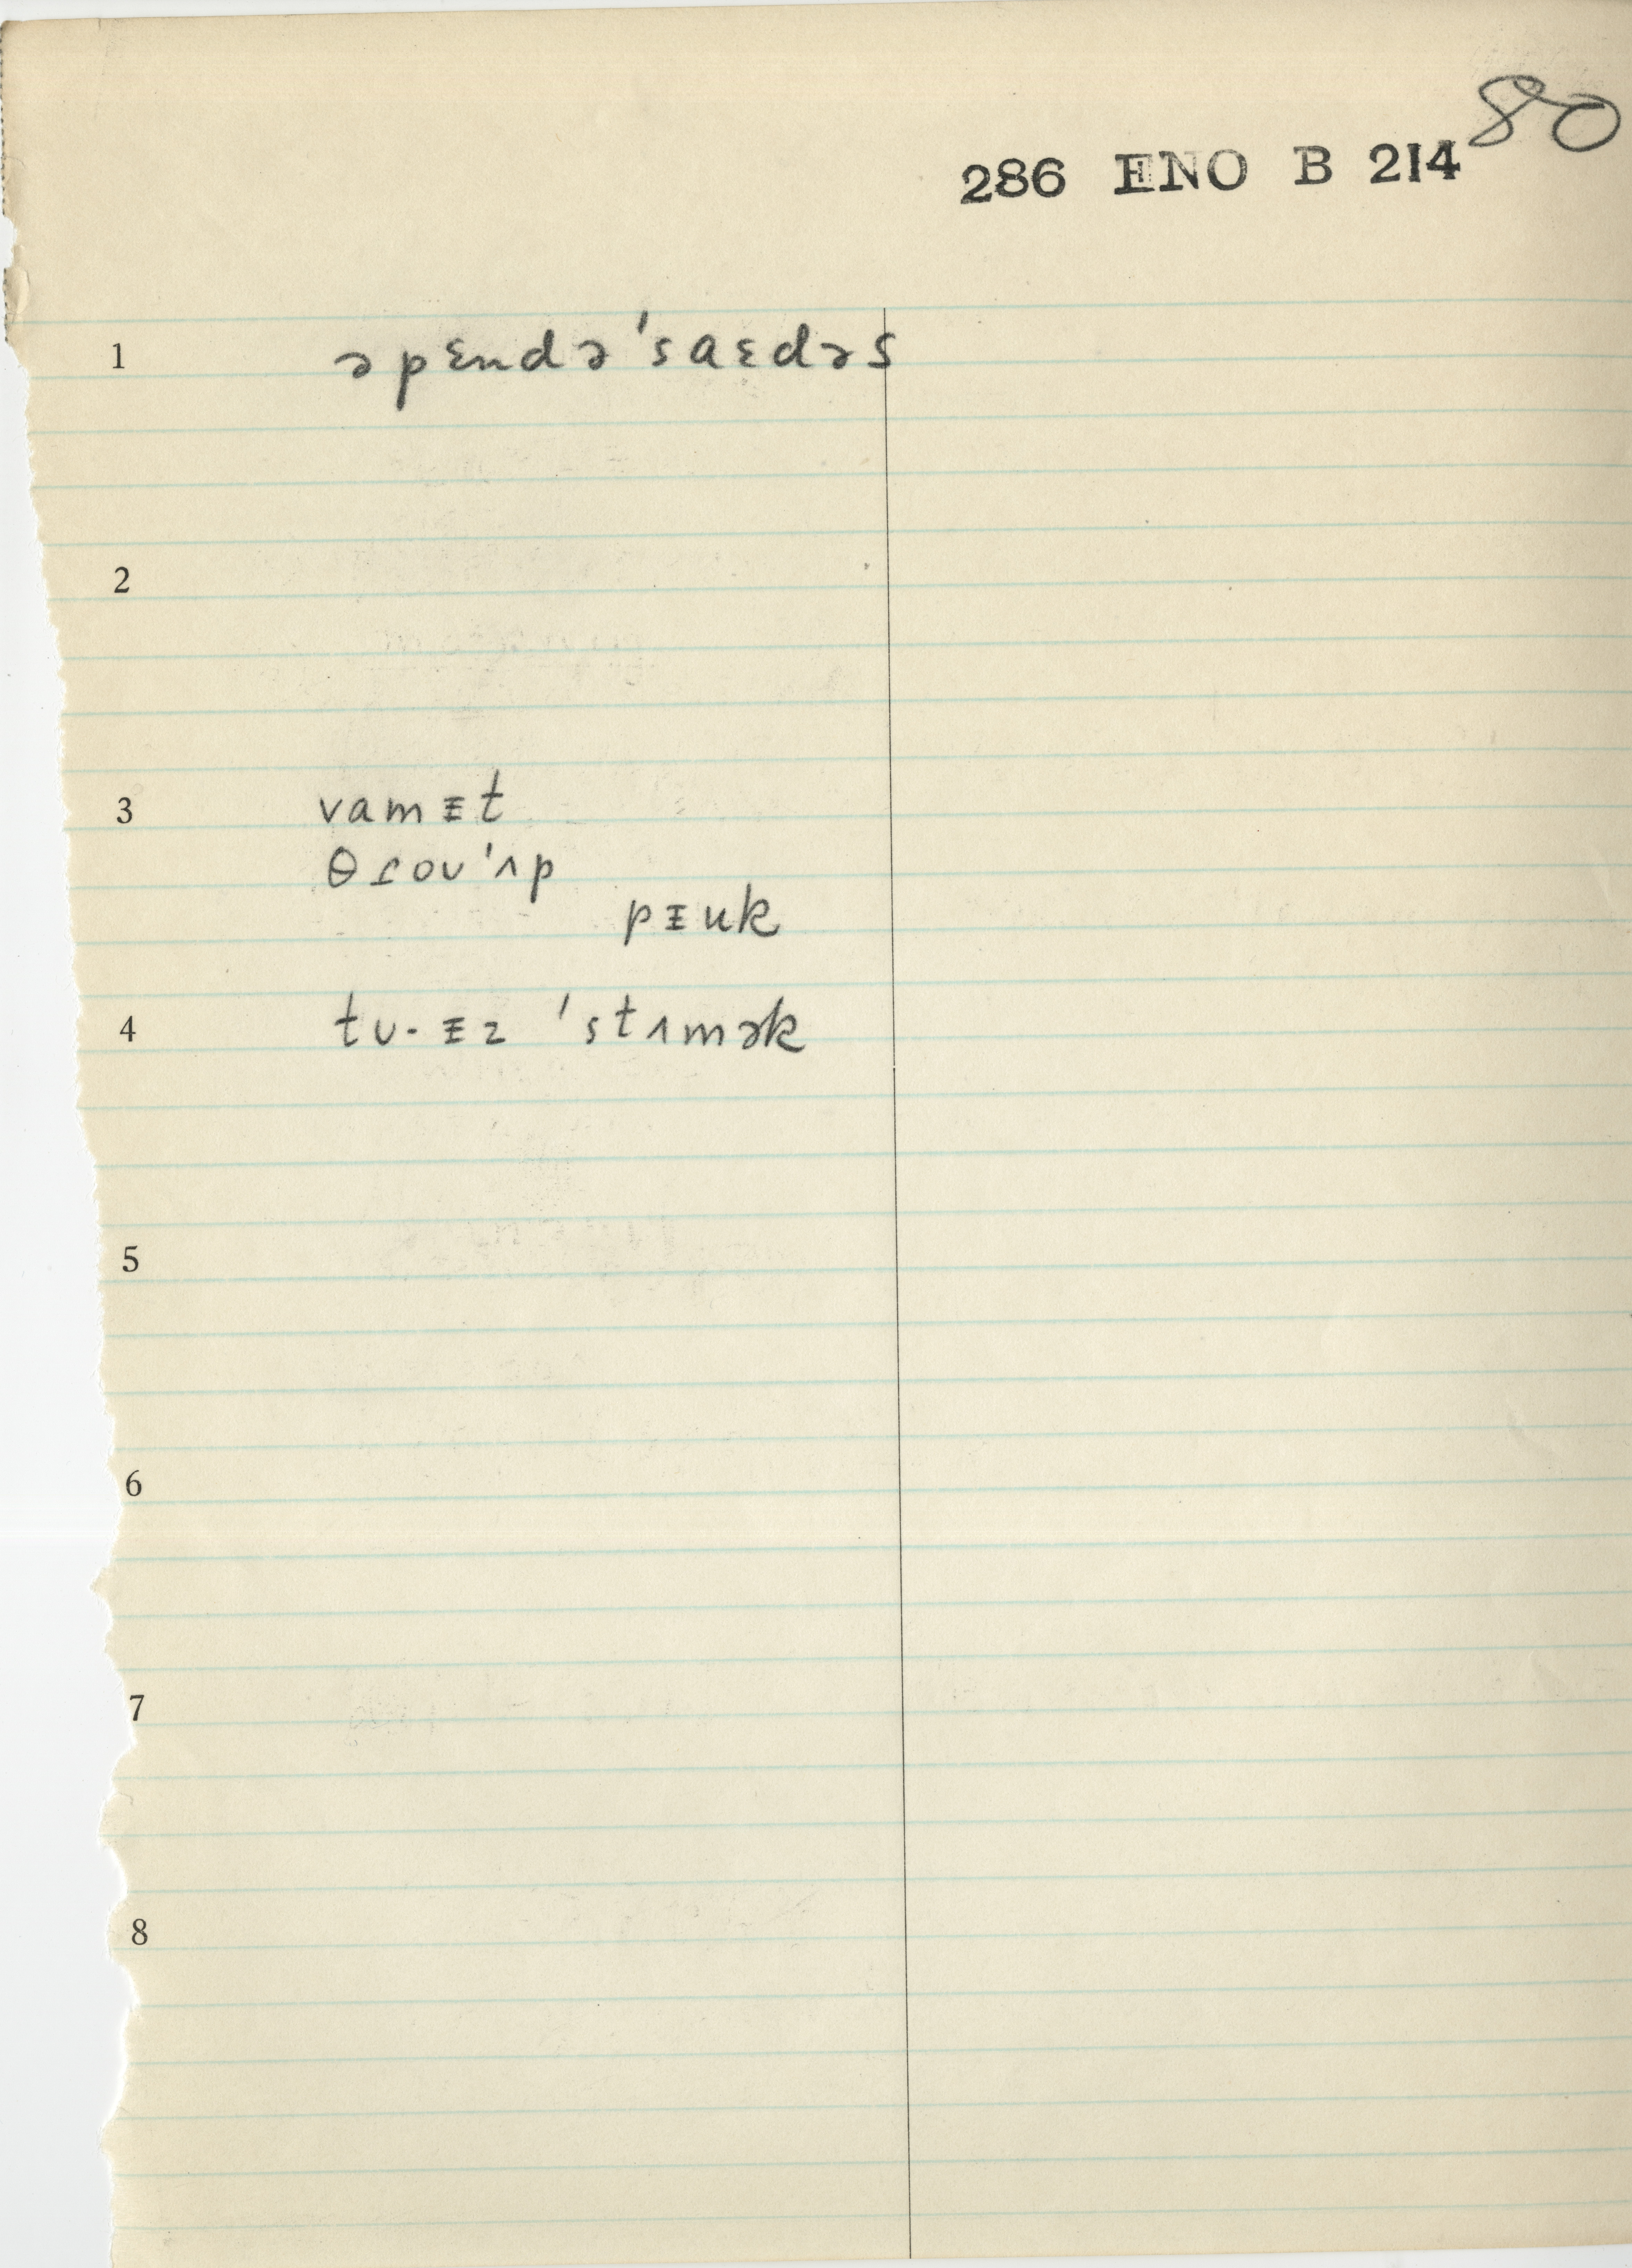 80
286 ENO B 214
1 əpɛndə'saɛdəs
2
3 vamᵻt
θɾoʊ'ʌp
pᵻuk
4 tʊ·ᵻz 'stʌmək
5
6
7
8